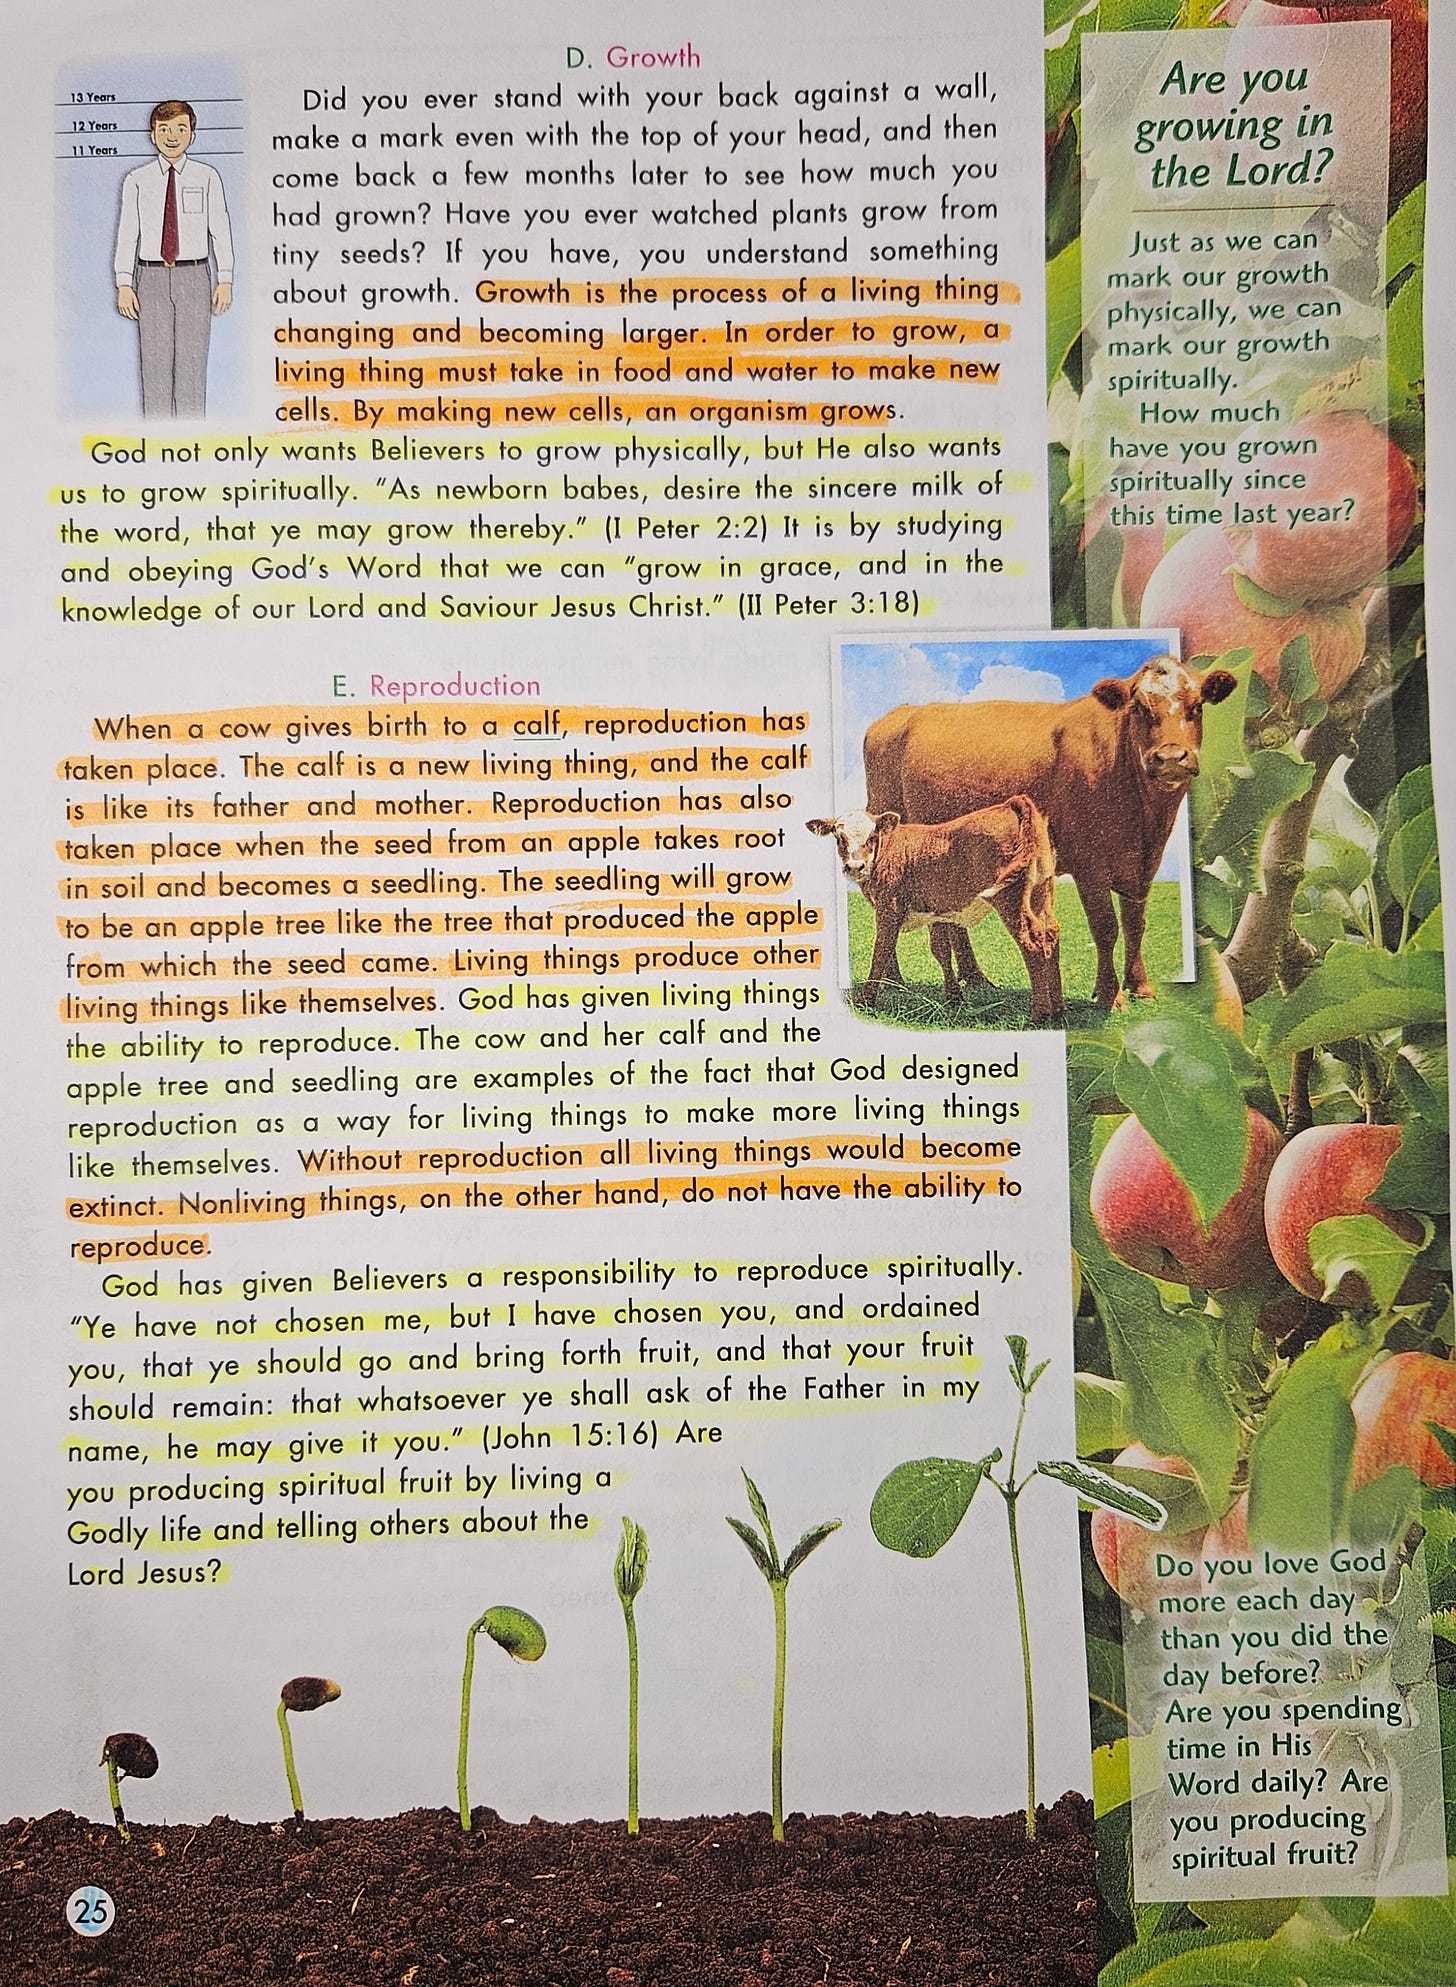 D. Growth
13 Years
12 Years
11 Years
Did you ever stand with your back against a wall,
make a mark even with the top of your head, and then
come back a few months later to see how much you
had grown? Have you ever watched plants grow from
tiny seeds? If you have, you understand something
about growth. Growth is the process of a living thing
changing and becoming larger. In order to grow, a
living thing must take in food and water to make new
cells. By making new cells, an organism grows.
God not only wants Believers to grow physically, but He also wants
us to grow spiritually. "As newborn babes, desire the sincere milk of
the word, that ye may grow thereby." (I Peter 2:2) It is by studying
and obeying God's Word that we can "grow in grace, and in the
knowledge of our Lord and Saviour Jesus Christ." (II Peter 3:18)
E. Reproduction
When a cow gives birth to a calf, reproduction has
taken place. The calf is a new living thing, and the calf
is like its father and mother. Reproduction has also
taken place when the seed from an apple takes root
in soil and becomes a seedling. The seedling will grow
to be an apple tree like the tree that produced the apple
from which the seed came. Living things produce other
living things like themselves. God has given living things
the ability to reproduce. The cow and her calf and the
apple tree and seedling are examples of the fact that God designed
reproduction as a way for living things to make more living things
like themselves. Without reproduction all living things would become
extinct. Nonliving things, on the other hand, do not have the ability to
reproduce.
God has given Believers a responsibility to reproduce spiritually.
"Ye have not chosen me, but I have chosen you, and ordained
you, that ye should go and bring forth fruit, and that your fruit
should remain: that whatsoever ye shall ask of the Father in my
name, he may give it you." (John 15:16) Are
you producing spiritual fruit by living a
Godly life and telling others about the
Lord Jesus?
25
Are you
growing in
the Lord?
Just as we can
mark our growth
physically, we can
mark our growth
spiritually.
How much
have you grown
spiritually since
this time last year?
Do you love God
more each day
than you did the
day before?
Are you spending
time in His
Word daily? Are
you producing
spiritual fruit?